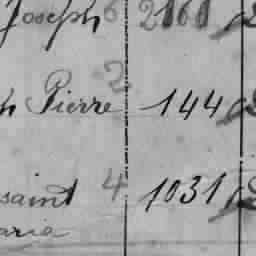 Joseph 6 2161
2
h Pierre 144
saint 4 1031
aria